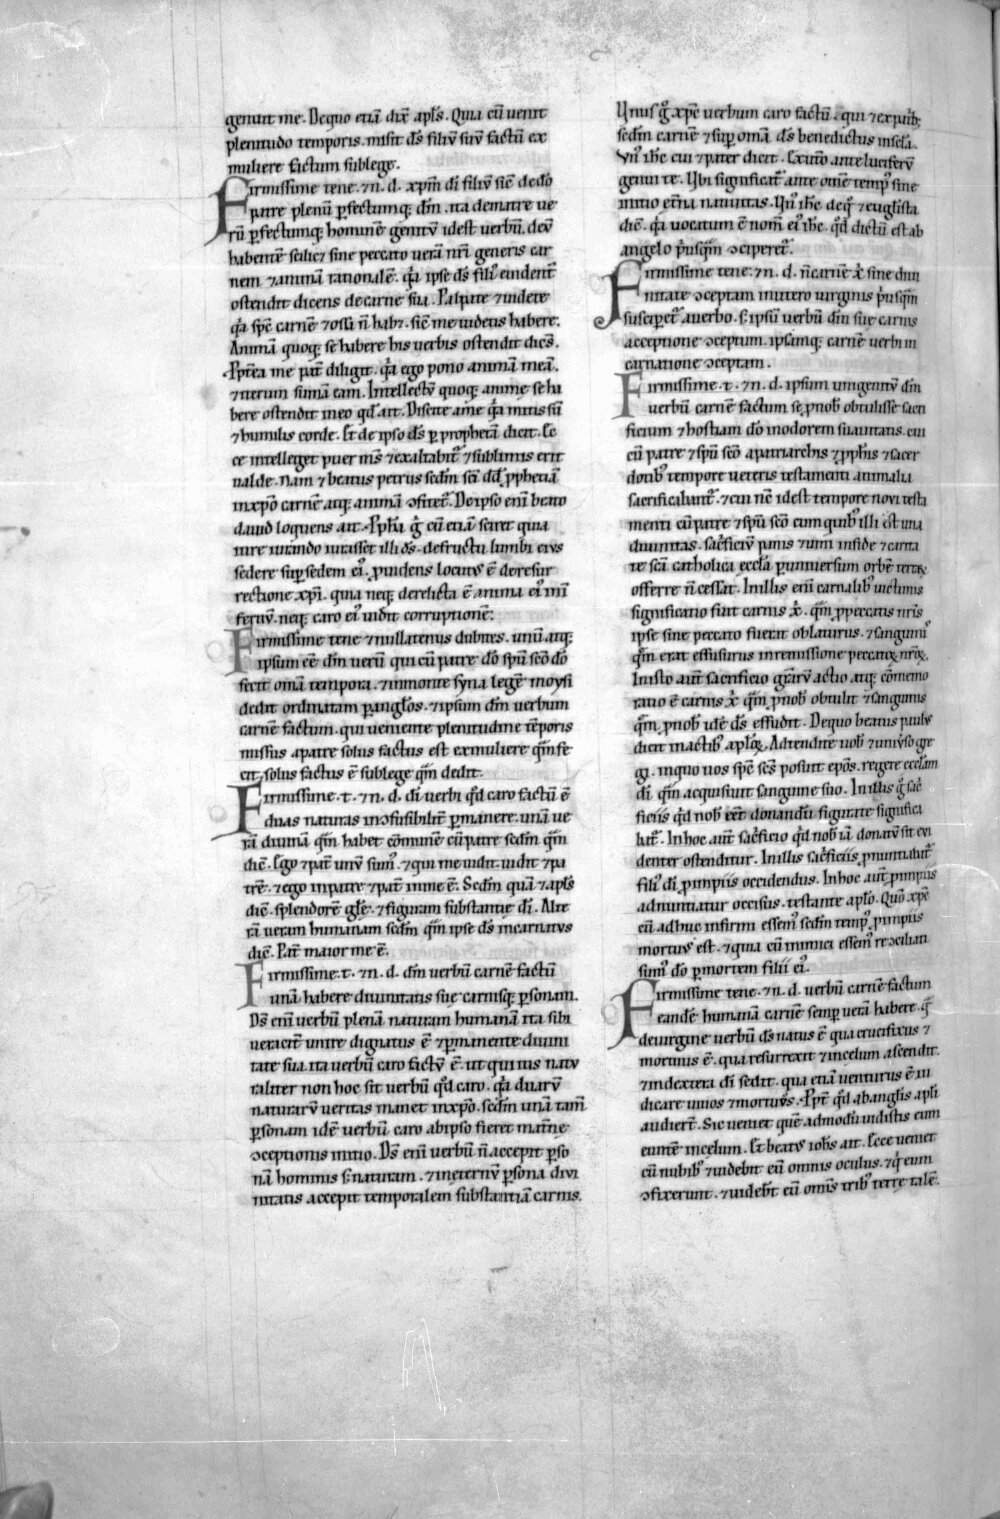 genuit me. De quo etiā dix̄ apl̄s. Quia cū venit
plenitudo temporis. misit d̄s filiū suū factū ex
muliere factum sub lege.
Firmissime tene. ⁊ n. d. xp̄m dī filiū sic̄ de dō
patre plenū ꝑfectumq; dm̄. ita de matre ue
rū ꝑfectumq; hominē genitū idest verbū. deū
habentē scilic; sine peccato uerā nr̄i generis car
nem ⁊ animā rationalē. qͥa ipse d̄s filiꝰ euident̄
ostendit dicens de carne sua. Palpate ⁊ uidete
qͥa sp̄c carnē ⁊ ossa n̄ hab⁊. sic̄ me uidetis habere.
Animā quoq; se habere his verbis ostendit dicēs.
Ꝓpt̄ea me pat̄ diligit. qͥa ego pono animā meā.
⁊ iterum sumā eam. Intellectū quoq; anime se ha
bere ostendit in eo qd̓ ait. Discite a me qͥa mitis sū
⁊ humilis corde. Et de ipso d̄s ꝑ prophetā dicit. Ec
ce intelleget puer ms̄ ⁊ exaltabitꝰ ⁊ sublimis erit
ualde. Nam ⁊ beatus petrus sedm̄ sc̄i dd̄ ꝓphetiam
in xp̄o carnē atq; animā ɔfitet̄. De ipso eni̅ beato
dauid loquens ait. Ꝓph̄a gͥ cū etiā sciret quia
iure iurando iurasset illi d̄s. de fructu lumbi eius
sedere suꝑ sedem eiꝰ. ꝓuidens locutꝰ ē de resur
rectione xp̄i. quia neq; derelicta ē anima eiꝰ in i̅
fernū. neq; caro eiꝰ uidit corruptionē.
Firmissime tene ⁊ nullatenus dubites. unū atq;
ipsum eē dm̄ uerū qui cū patre dō sp̄u sc̄o dō
fecit om̄a tempora. ⁊ in monte syna legē moysi
dedit ordinatam ꝑ angl̄os. ⁊ ipsum dm̄ verbum
carnē factum. qui ueniente plenitudine tēporis
missus a patre solus factus est ex muliere qm̄ fe
cit. solus factus ē sub lege qm̄ dedit.
Firmissime. t. ⁊ n. d. dī verbi qd̓ caro factū ē
duas naturas inɔfusibilit̄ ꝑmanere. unā ue
rā diuinā qm̄ habet cōmunē cū patre sedm̄ qm̄
dic̄. Ego ⁊ pat̄ unū sumꝰ. ⁊ qui me uidit. uidit ⁊ pa
trē. ⁊ ego in patre ⁊ pat̄ in me ē. Sedm̄ quā ⁊ apl̄s
dic̄. splendorē gl̄e. ⁊ figuram substantie dī. Alte
rā ueram humanam sedm̄ qm̄ ipse d̄s incarnatus
dic̄. Pat̄ maior me ē.
Firmissime. t. ⁊ n. d. dm̄ verbū carnē factū
unā habere diuinitatis sue carnisq; ꝑsonam.
D̄s eni̅ verbū plenā naturam humanā ita sibi
ueracit̄ unire dignatus ē ⁊ ꝑmanente diuini
tate sua. ita verbū caro factū ē. ut quiuis natu
raliter non hoc sit verbū qd̓ caro. qͥa duarū
naturarū veritas manet in xp̄o. sedm̄ unā tam̄
ꝑsonam idē verbū caro ab ipso fieret mat̄ne
ɔceptionis initio. D̄s eni̅ verbū n̄ accepit ꝑso
nā hominis s; naturam. ⁊ in eternū ꝑsona diui
nitatis accepit temporalem substantiā carnis.
Vnus gͦ xp̄c verbum caro factū. qui ⁊ ex patrib;
sedm̄ carnē ⁊ suꝑ om̄a d̄s benedictus in sc̄la.
Vnꝰ ih̄c cui ⁊ pater dicit. Ex utero ante luciferū
genui te. Vbi significat̄ ante om̄e tempꝰ sine
initio et̄na natiuitas. Vnꝰ ih̄c de qͦ ⁊ euḡlista
dic̄. qͥa uocatum ē nom̄ eiꝰ ih̄c qd̓ dictū est ab
angelo pͥusqm̄ ɔciperet̄.
Firmissime tene. ⁊ n. d. n̄ carnē x̄ sine diui
nitate ɔceptam in utero uirginis pͥusqm̄
susciꝑet̄ a verbo. s; ipsū verbū dm̄ sue carnis
acceptione ɔceptum. ipsamq; carnē verbi in
carnatione ɔceptam.
Firmissime. t. ⁊ n. d. ipsum unigenitū dm̄
verbū carnē factum se ꝓ nob̄ obtulisse sacri
ficium ⁊ hostiam dō in odorem suauitatis. cui
cū patre ⁊ sp̄u sc̄o a patriarchis ⁊ ꝓph̄is ⁊ sacer
dotibꝰ tempore ueteris testamenti animalia
sacrificabant̄. ⁊ cui nc̄ idest tempore noui testa
menti cū patre ⁊ sp̄u sc̄o cum quibꝰ illi est una
diuinitas. sacͥficiū panis ⁊ uini in fide ⁊ carita
te sc̄a catholica eccl̄a ꝑ uniuersum orbē terraꝝ
offerre n̄ cessat. In illis eni̅ carnalibꝰ uictimis
significatio fuit carnis x̄. qm̄ ꝓ peccatis nr̄is
ipse sine peccato fuerat oblaturus. ⁊ sanguinꝰ
qm̄ erat effusurus in remissione peccatoꝝ nr̄oꝝ.
In isto aut̄ sacrificio gr̄arū actio atq; cōmemo
ratio ē carnis x̄ qm̄ ꝓ nob̄ obtulit ⁊ sanguinis
qm̄ ꝓ nob̄ idē d̄s effudit. De quo beatus paulꝰ
dicit in actibꝰ apl̄oꝝ. Adtendite uob̄ ⁊ uniuso gre
gi. in quo uos sp̄c sc̄s posuit ep̄os. regere eccl̄am
dī qm̄ acquisiuit sanguine suo. In illis gͦ sacͥ
ficiis qd̓ nob̄ eēt donandū figurate significa
bat̄. In hoc aut̄ sacͥficio qd̓ nob̄ iā donatū sit eui
denter ostenditur. In illis sacͥficiis ꝓnuntiabat̄
filiꝰ dī ꝓ impiis occidendus. In hoc aut̄ ꝓ impiis
adnuntiatur occisus. testante apl̄o. Quō xp̄c
cū adhuc infirmi essemꝰ sedm̄ tempꝰ ꝓ impiis
mortuus est. ⁊ quia cū inimici essemꝰ reɔciliati
sumꝰ dō ꝑ mortem filii eiꝰ.
Firmissime tene. ⁊ n. d. verbū carnē factum
eandē humanā carnē semꝑ uerā habere. qͣ
de uirgine verbū d̄s natus ē qua crucifixus ⁊
mortuus ē. qua resurrexit ⁊ in celum ascendit.
⁊ in dextera dī sedit. qua etiā uenturus ē iu
dicare uiuos ⁊ mortuos. Ꝓpt̄ qd̓ ab angl̄is apl̄i
audiert̄. Sic ueniet quē admodū uidistis eum
euntē in celum. Et beatus ioh̄s ait. Ecce ueniet
cū nubibꝰ ⁊ uidebit eū omnis oculus. ⁊ qͥ eum
ɔfixerunt. ⁊ uidebt̄ eū om̄s tribꝰ terre talē.